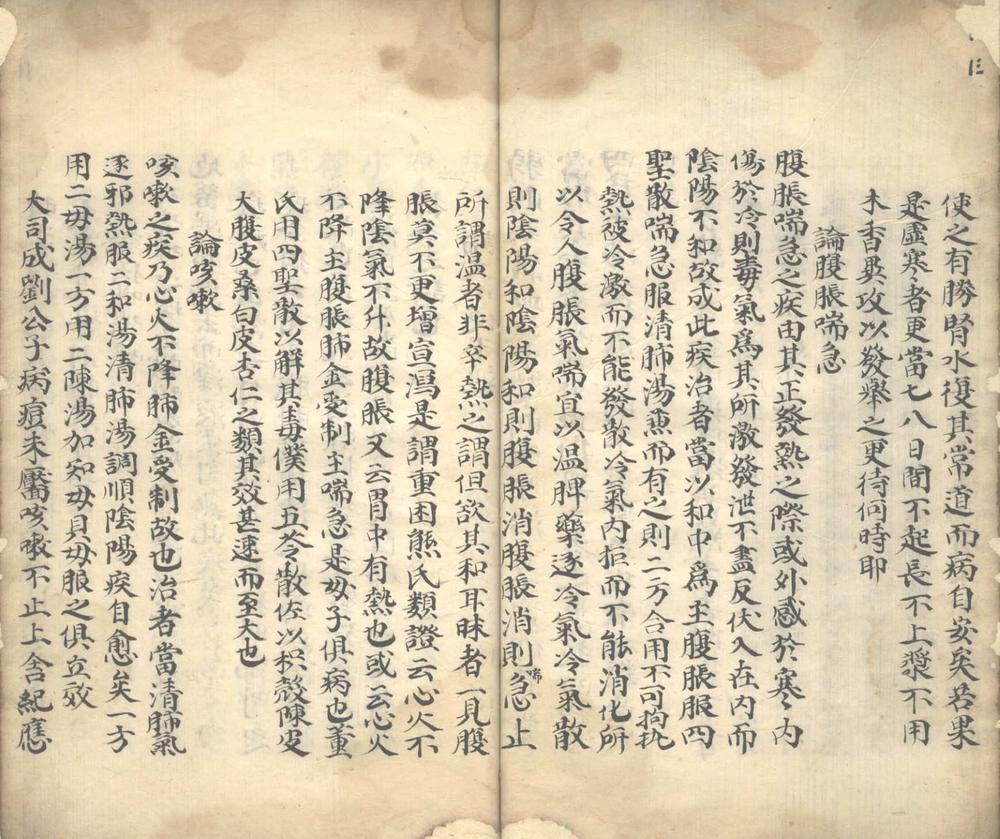 使之有勝腎水復其常道而病自安矣若果
是虛寒者更當七八日間不起長不上漿不用
木香異攻以發舉之更待何時耶
論腹脹喘急
腹脹喘急之疾由其正發熱之際或外感於寒々内
傷於冷則毒氣爲其所激發泄不盡反伏入在内而
陰陽不和故成此疾治者當以和中爲主腹脹服四
聖散喘急服清肺湯兼而有之則二方合用不可拘執
熱被冷激而不能發散冷氣内拒而不能消化所
以令人腹脹氣喘宜以温脾藥逐冷氣冷氣散
則陰陽和陰陽和則腹脹消腹脹消則喘急止
所謂温者非卒熱之謂但欲其和耳昧者一見腹
脹莫不更增宣瀉是謂重困熊氏類證云心火不
降陰氣不升故腹脹又云胃中有熱也或云心火
不降主腹脹肺金受制主喘急是母子俱病也董
氏用四聖散以解其毒僕用五苓散佐以枳殼陳皮
大腹皮桑白皮杏仁之類其效甚速而至大也
論咳嗽
咳嗽之疾乃心火不降肺金受制故也治者當清肺氣
逐邪熱服二和湯清肺湯調順陰陽疾自愈矣一方
用二母湯一方用二陳湯加知母貝母服之俱立效
大司成劉公子病痘未靨咳嗽不止上舍紀應